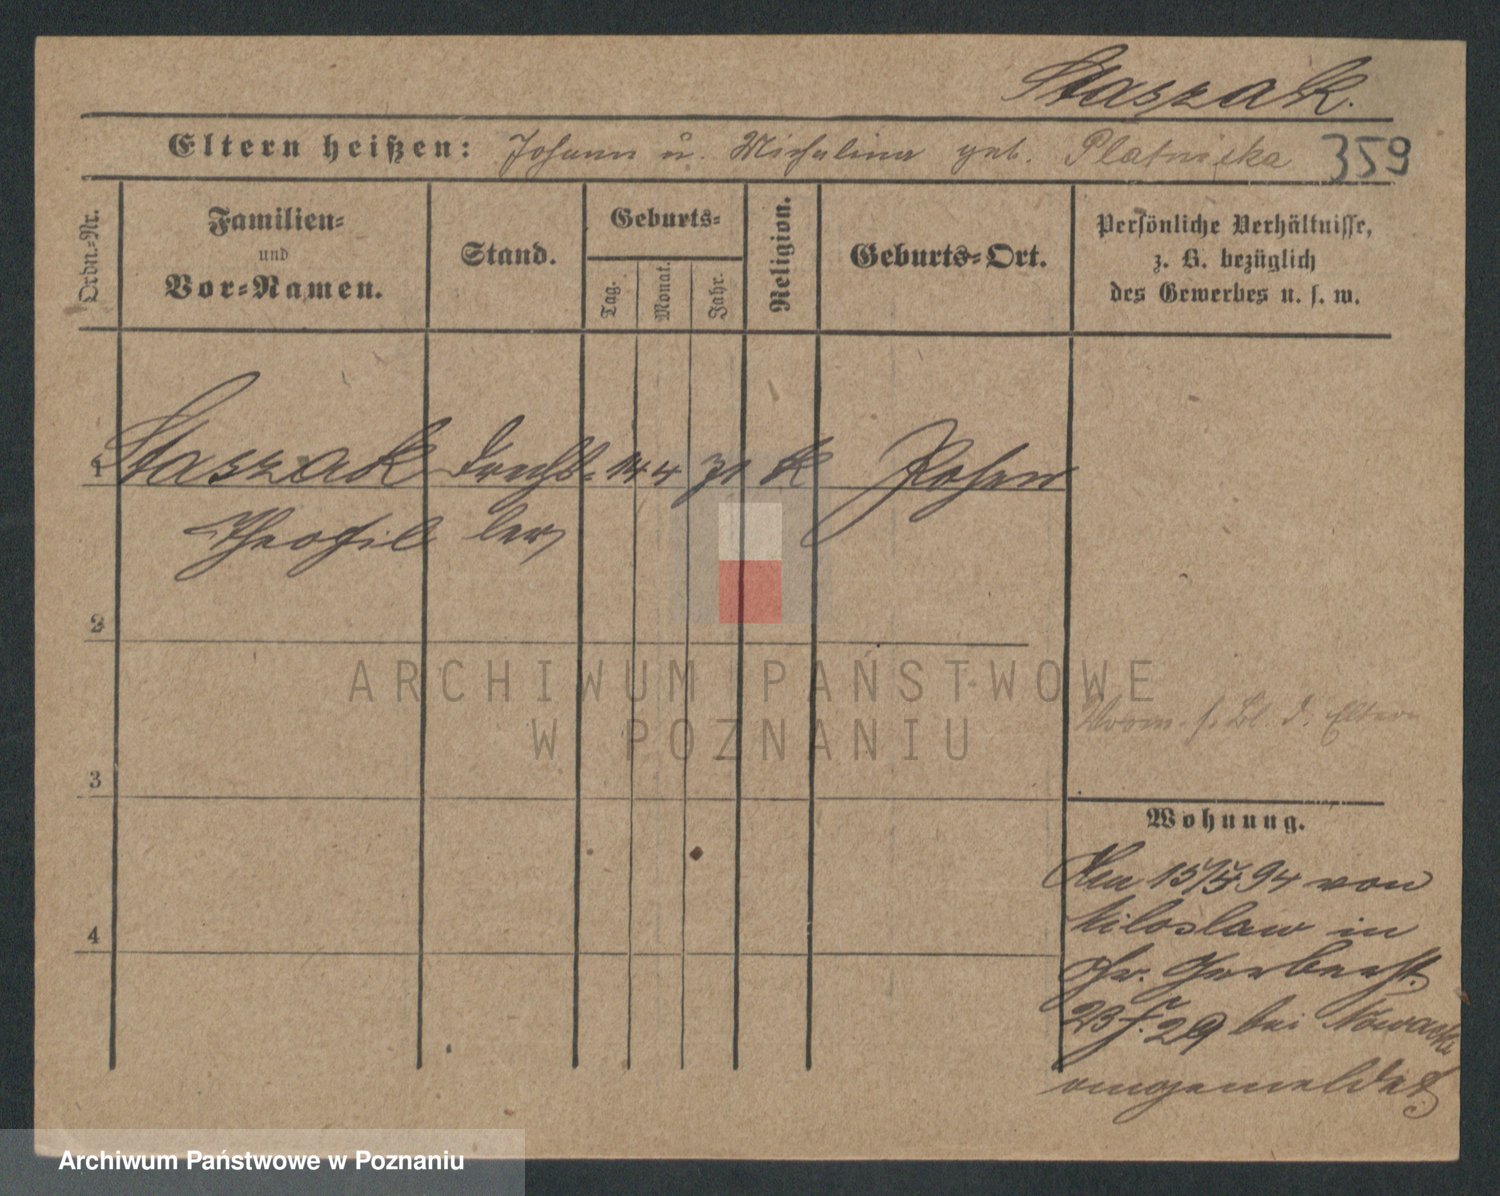 Staszak.
Eltern heißen: Johann u. Michalina geb. Platnicka 359
Ordn.-Nr.
Familien-
und
Vor-Namen.
Stand.
Geburts-
Tag.
Monat.
Jahr.
Religion.
Geburts-Ort.
Persönliche Verhältnisse,
z. B. bezüglich
des Gewerbes u. s. w.
1 Staszak Drechs- 14 4 71 k Posen
Theofil ler
2
3
4
ARCHIWUM PAŃSTWOWE
W POZNANIU
s. Bl. d. Eltern
Wohnung.
Den 15/5 94 von
Miloslaw in
Gr. Gerberst.
23 bei Nowacki
angemeldet
Archiwum Państwowe w Poznaniu